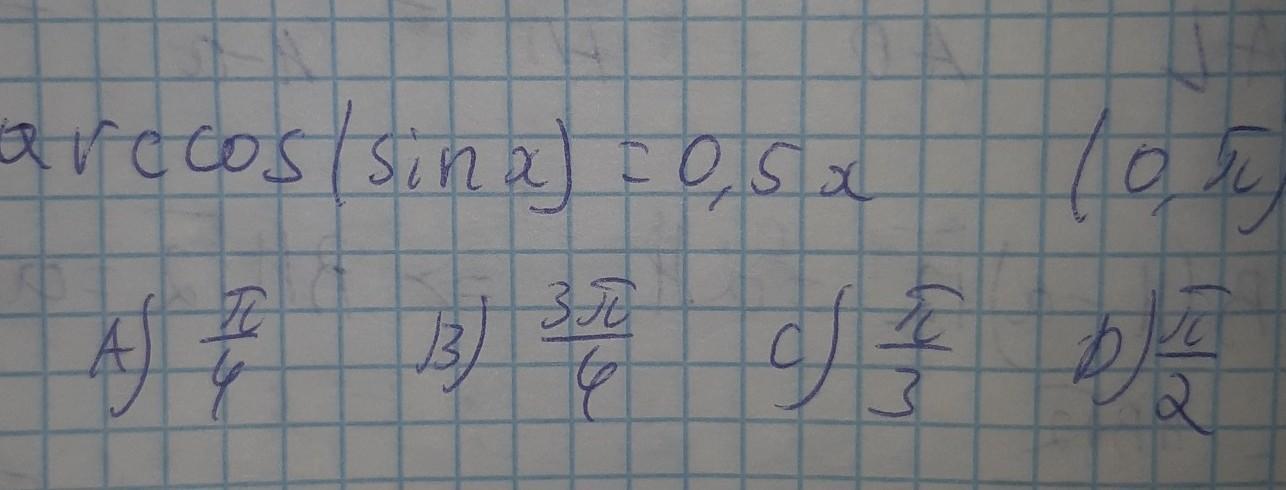 arccos(sin x) = 0,5x (0, π)
A) π/4 B) 3π/4 C) π/3 D) π/2